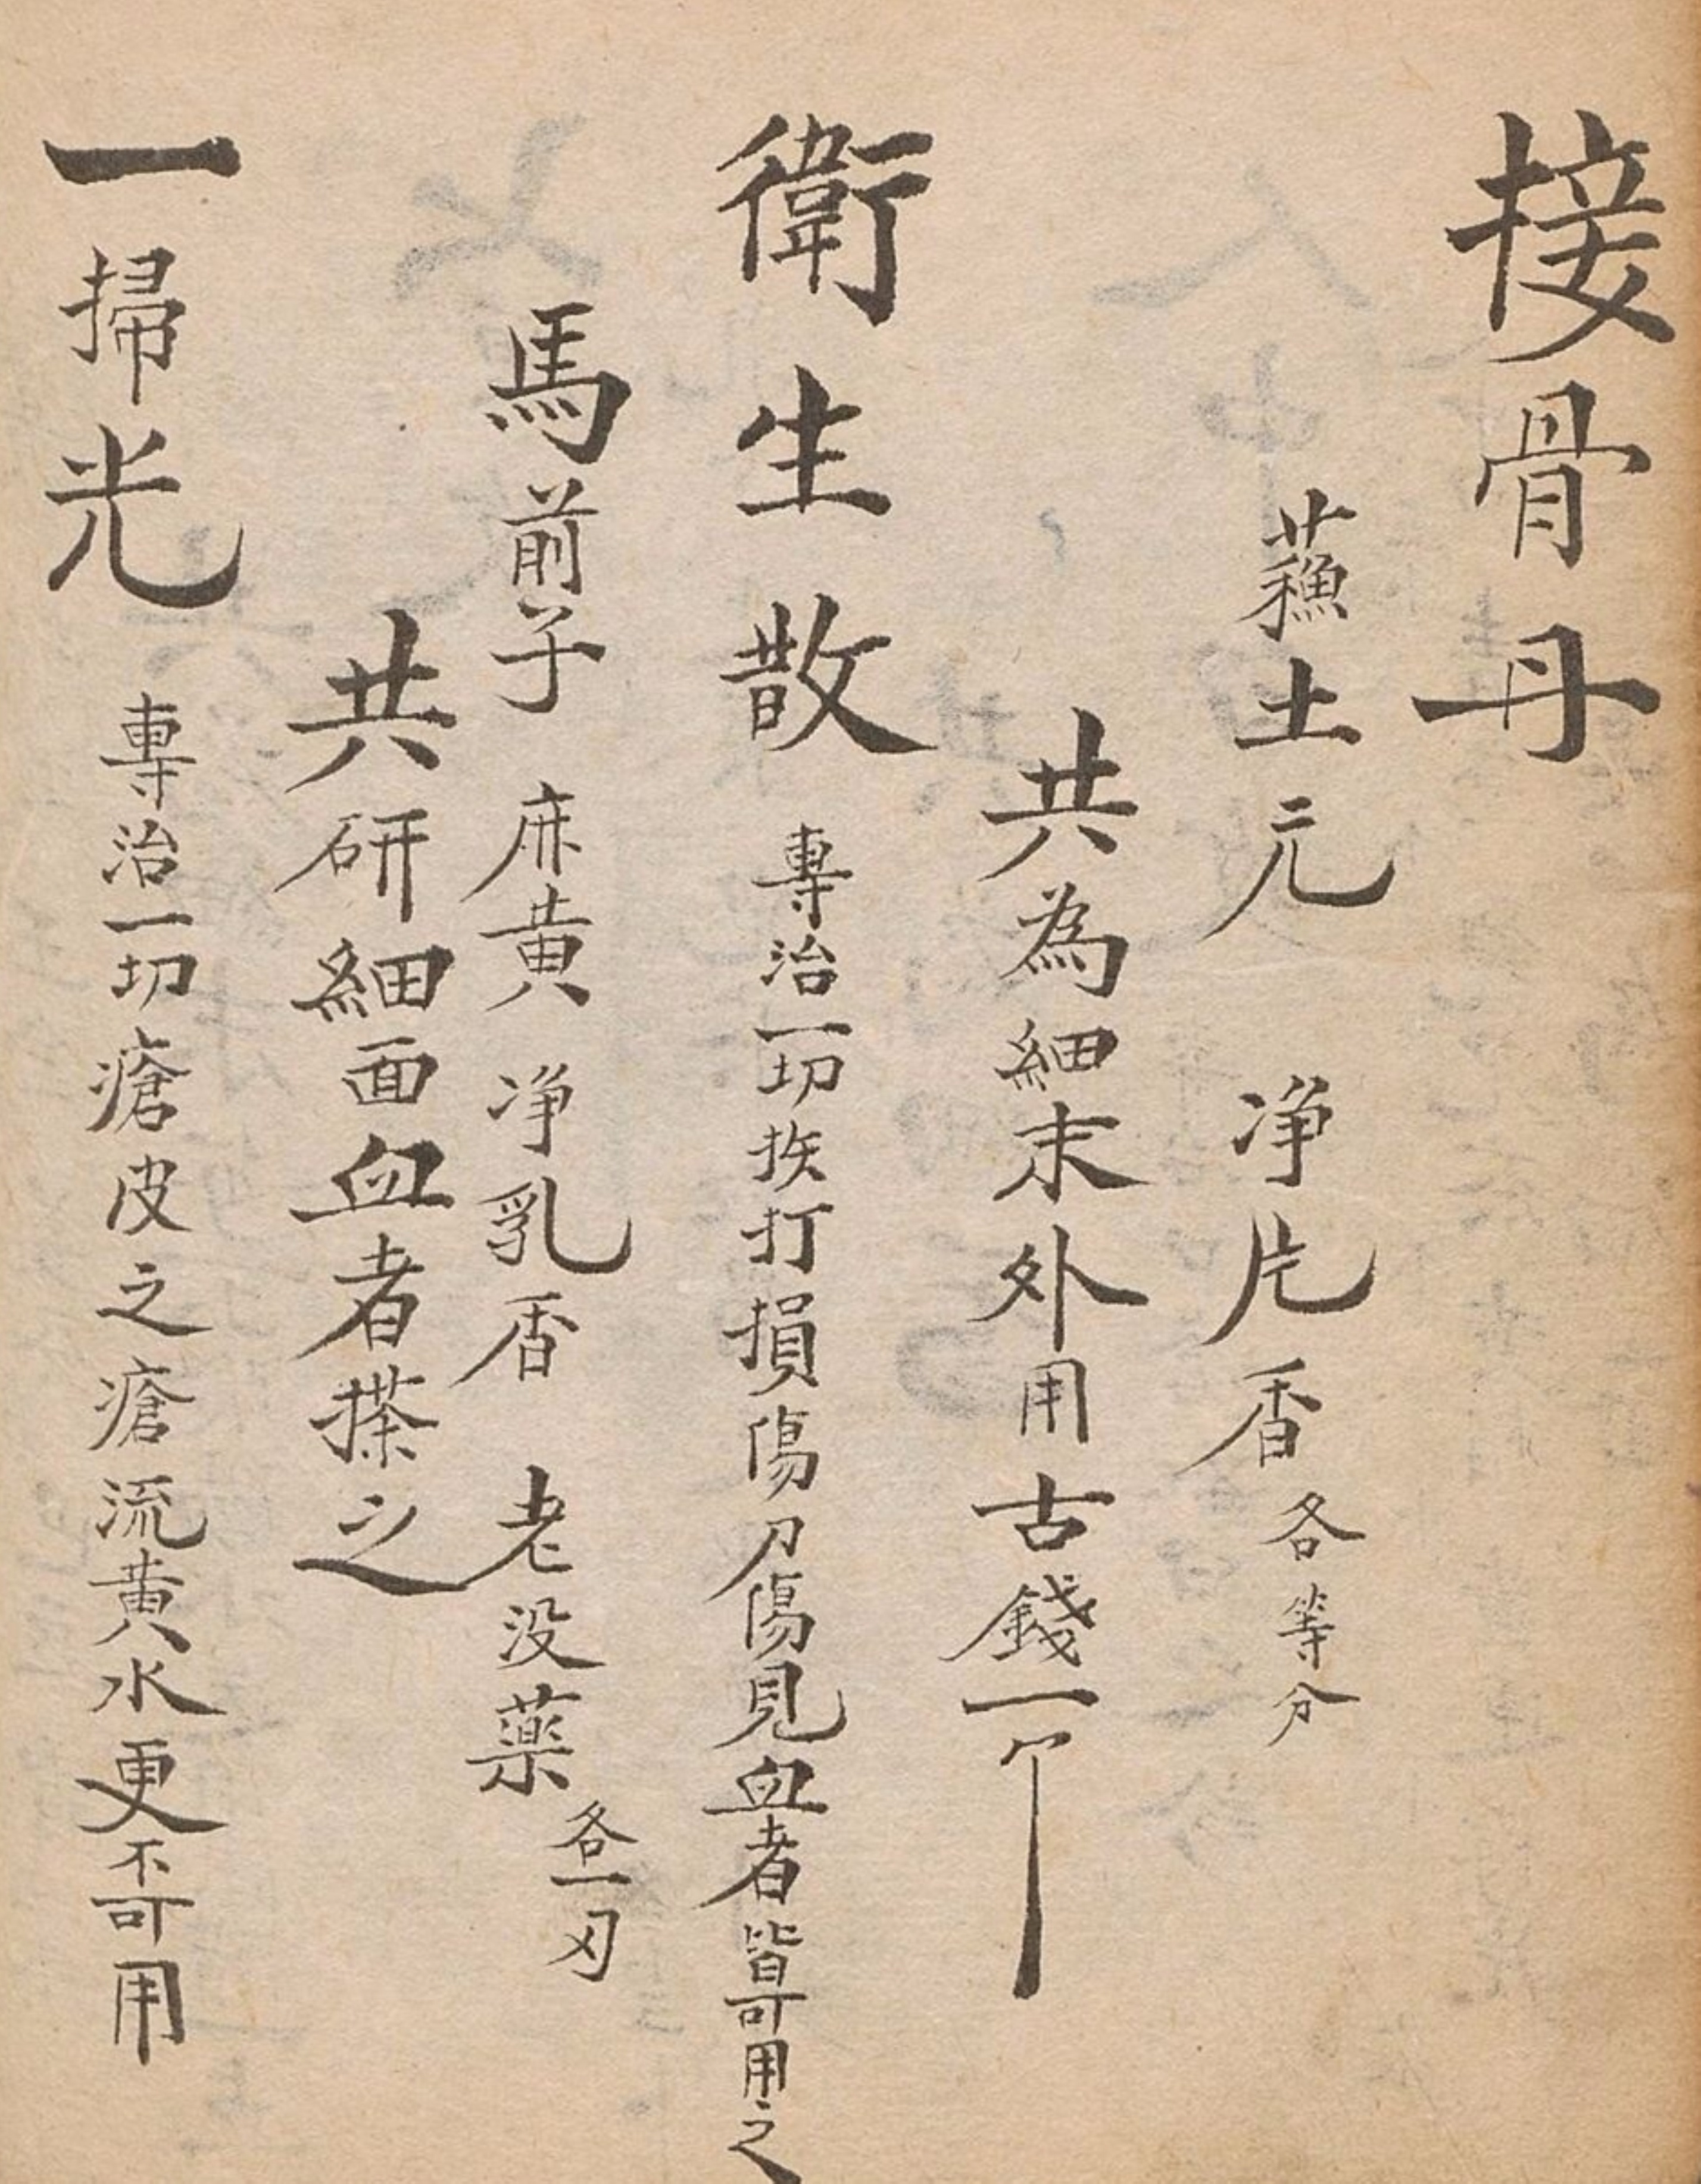 接骨丹
蘓土元 净片香各等分
共為細末外用古錢一卩
衛生散 專治一切挨打損傷刀傷見血者皆可用之
馬前子 麻黄 净乳香 老没藥各一刄
共研細面血者搽之
一掃光 專治一切瘡皮之瘡流黄水更不可用